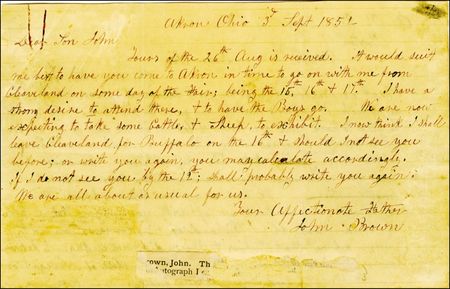 Akron Ohio 3d Sept 1851
Dear Son John
Yours of the 26th Aug is recived. It would suit
me best to have you come to Akron in time to go on with me from
Cleaveland on some day of the Fair; being the 15th, 16th & 17th. I have a
strong desire to attend there, & to have the Boys go. We are now
expecting to take some Cattle, & Sheep, to exhibit. I now think I shall
leave Cleaveland for Buffalo on the 16th & should I not see you
before; or write you again, you may calculate accordingly.
If I do not see you by the 12th; shall probably write you again.
We are all about as usual for us.
Your Affectionate Father
John Brown
rown, John. Th
utograph